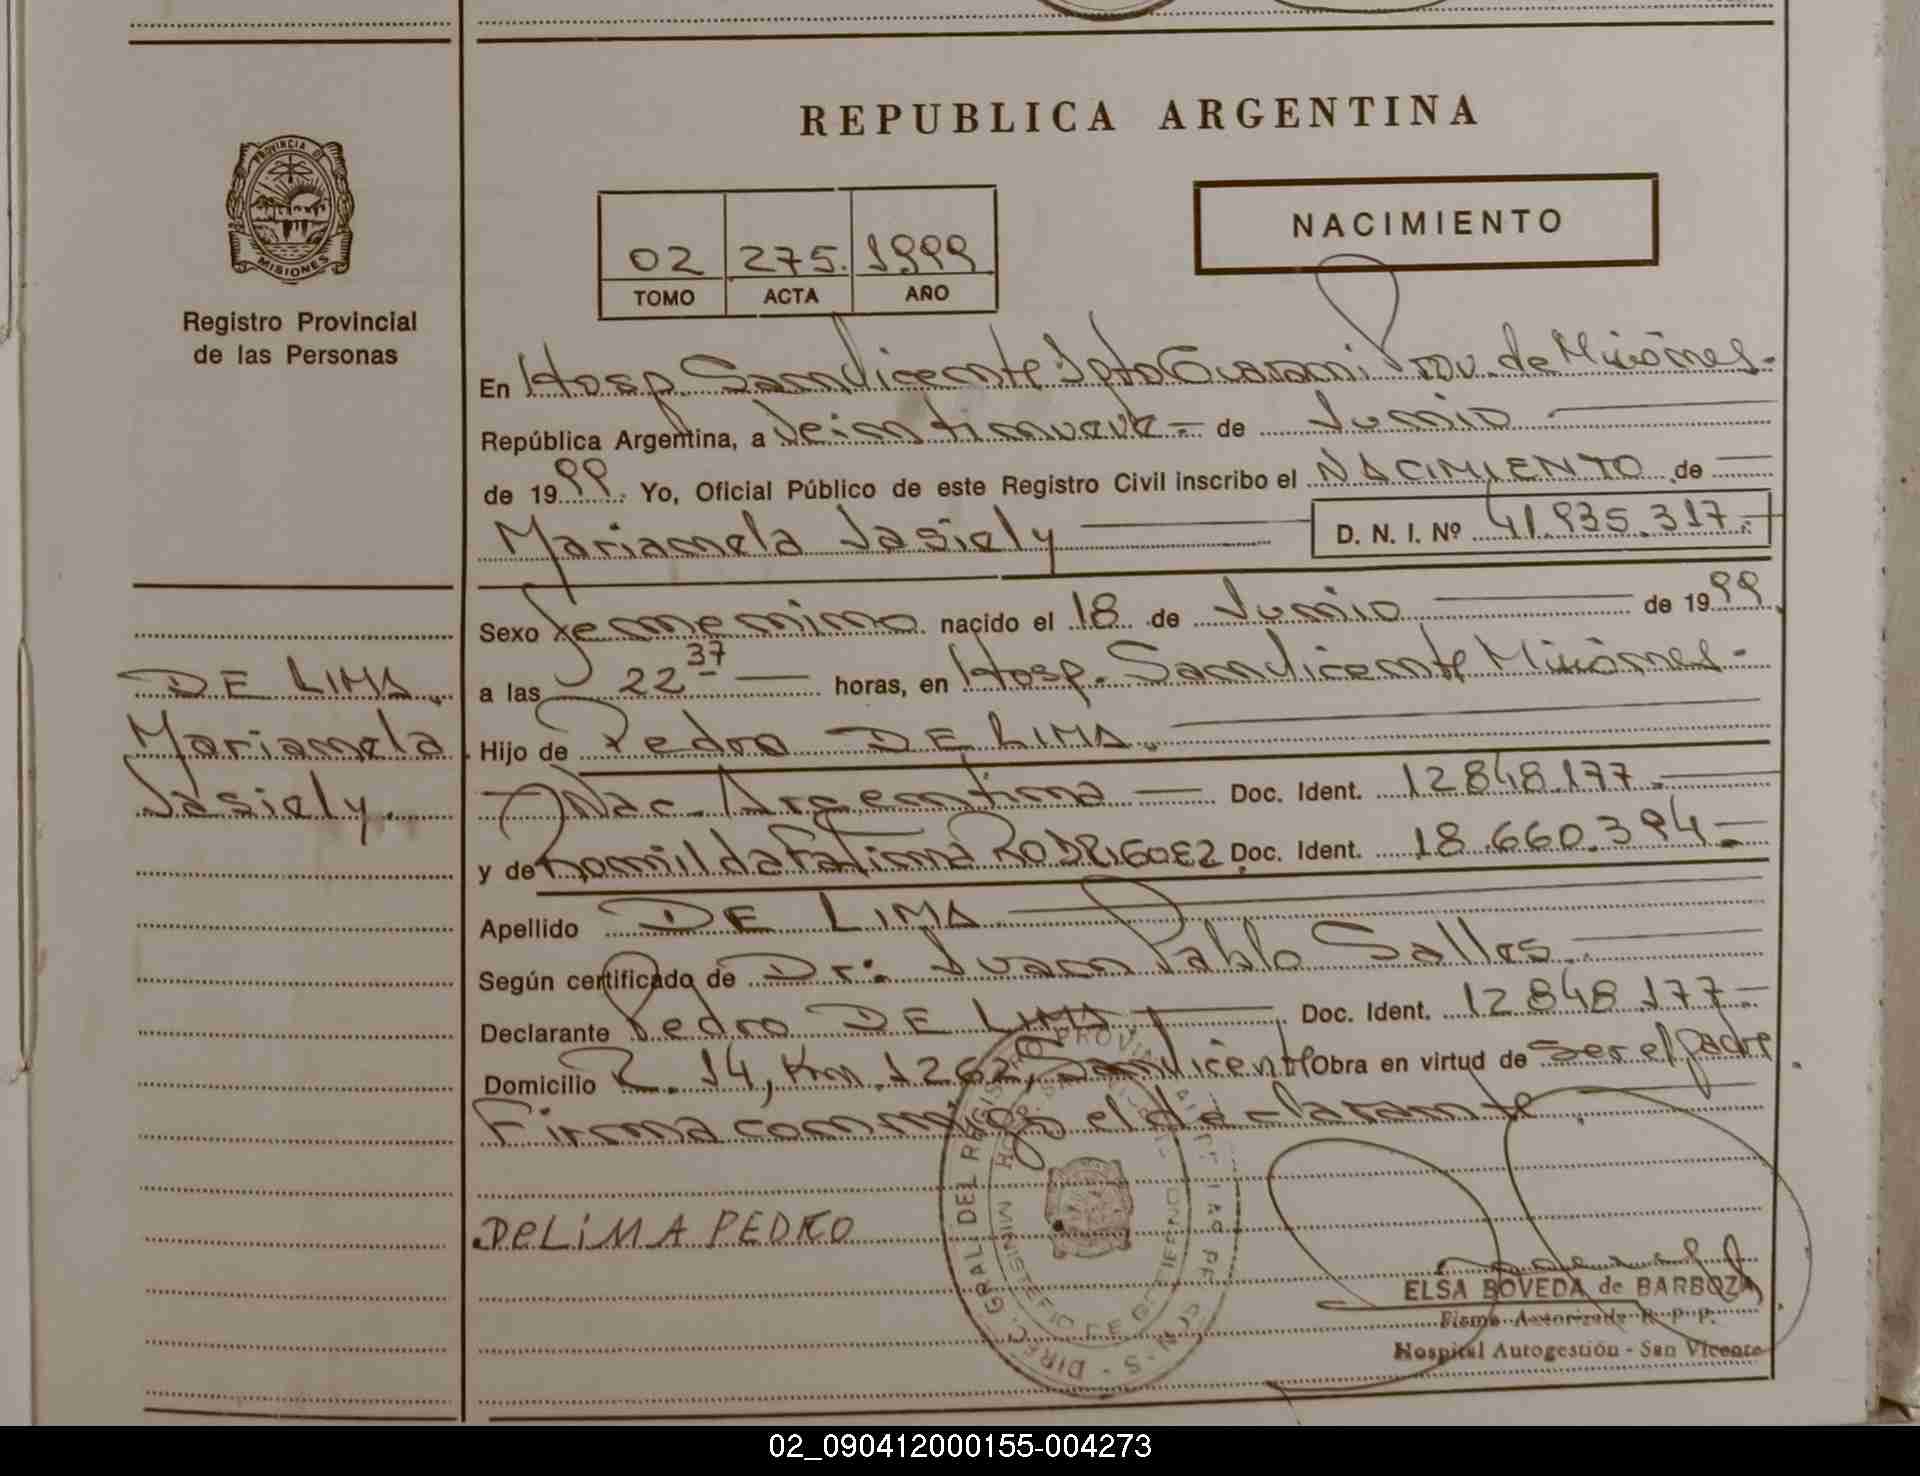 REPUBLICA ARGENTINA
PROVINCIA DE
MISIONES
Registro Provincial
de las Personas
NACIMIENTO
02 275. 1999
TOMO ACTA AÑO
En Hosp. San Vicente Dpto Guarani Prov. de Misiones.-
República Argentina, a Veintinueve = de Junio
de 1999. Yo, Oficial Público de este Registro Civil inscribo el NACIMIENTO de
Marianela Jasiely D. N. I. Nº 41.935.317.-
Sexo Femenino nacido el 18 de Junio de 1999
a las 22 37 horas, en Hosp. San Vicente Misiones.-
DE LIMA.
Marianela
Jasiely.
Hijo de Pedro DE LIMA.
Nac. Argentina Doc. Ident. 12848.177.-
y de Romilda Fatima RODRIGUEZ Doc. Ident. 18.660.394.-
Apellido DE LIMA
Según certificado de Dr: Juan Pablo Salles.
Declarante Pedro DE LIMA. Doc. Ident. 12848.177.-
Domicilio R. 14, Km. 1262, San Vicente Obra en virtud de ser el padre.
Firma conmigo el declarante.
DELIMA PEDRO
ELSA BOVEDA de BARBOZA
Firma Autorizada R. p. p.
Hospital Autogestión - San Vicente
02_090412000155-004273